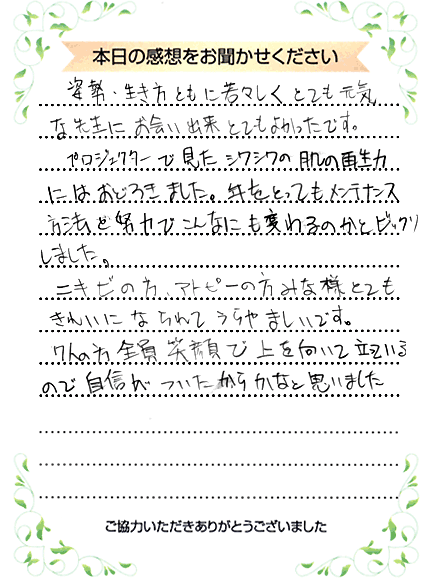 本日の感想をお聞かせください
姿勢・生き方ともに若々しくとても元気
な先生にお会い出来とてもよかったです。
プロジェクターで見たシワシワの肌の再生力
にはおどろきました。年をとってもメンテナンス
方法と努力でこんなにも変わるのかとビックリ
しました。
ニキビの方、アトピーの方みな様とても
きれいになられてうらやましいです。
7人の方全員笑顔で上を向いて立っている
ので自信がついたからかなと思いました
ご協力いただきありがとうございました